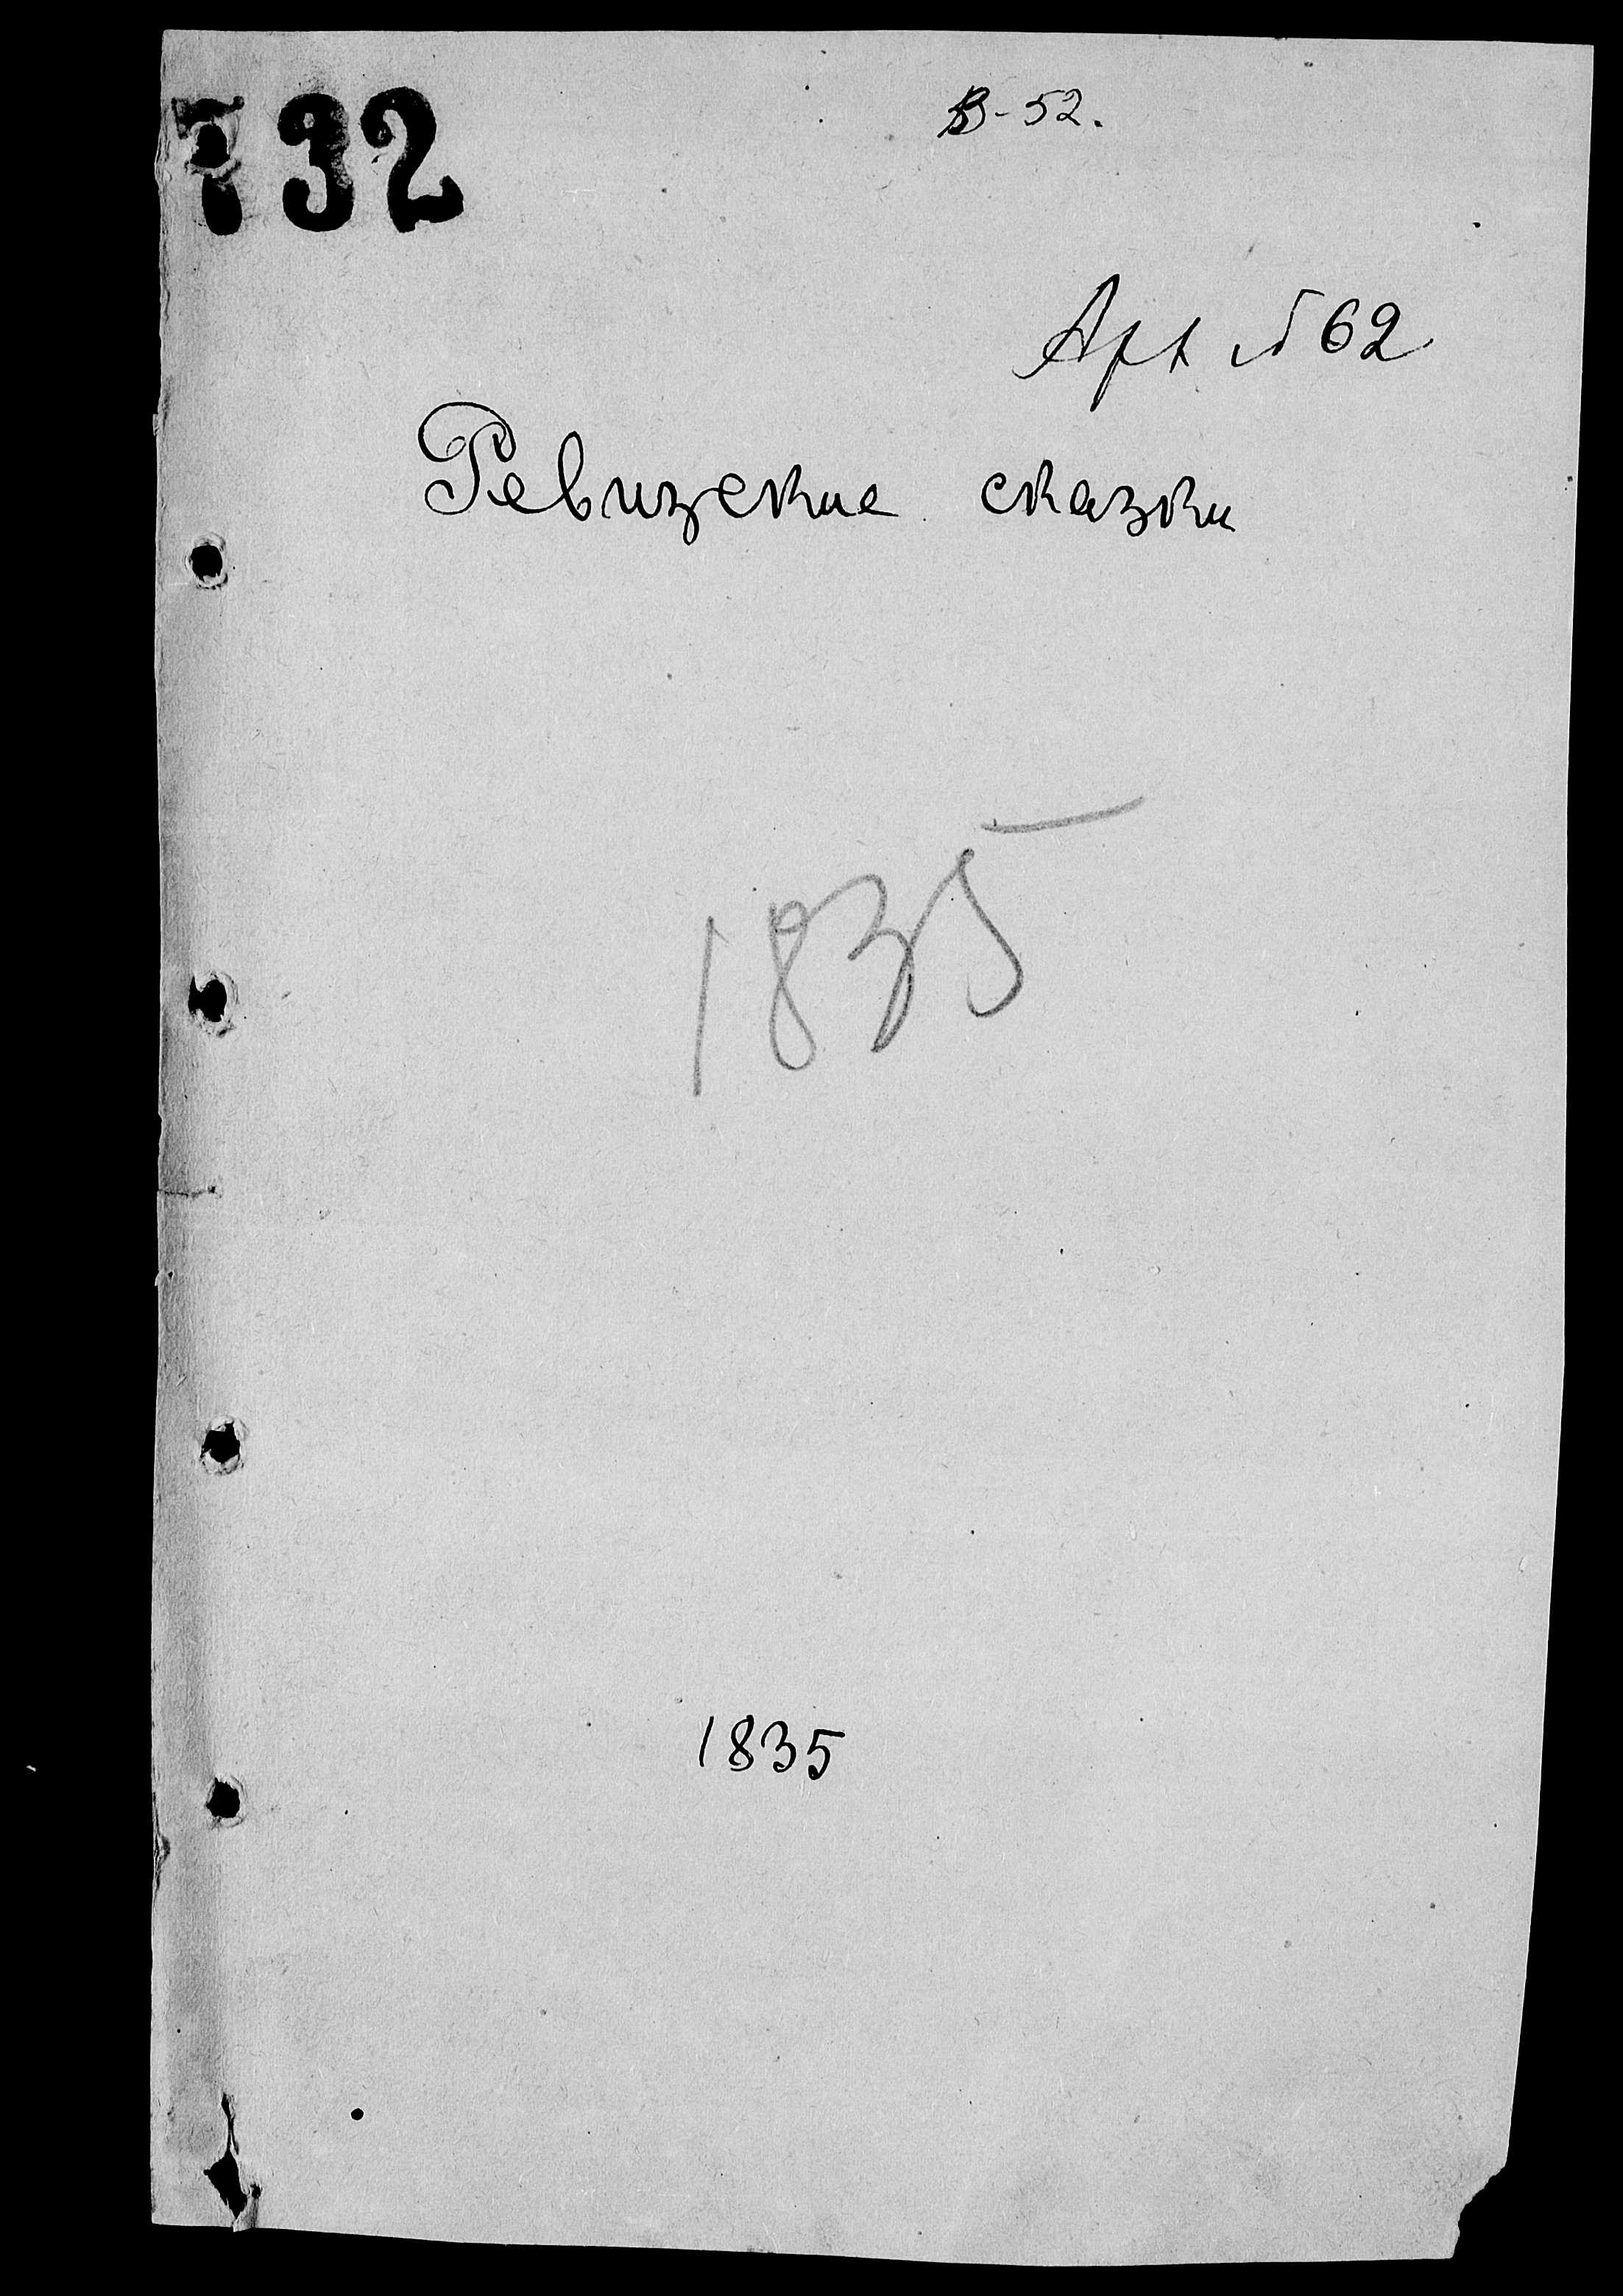 732
В-52.
Арх № 62
Ревизские сказки
1835
1835